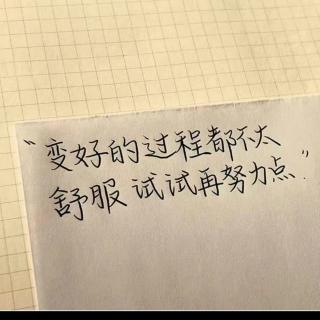 “变好的过程都不太
舒服 试试再努力点”